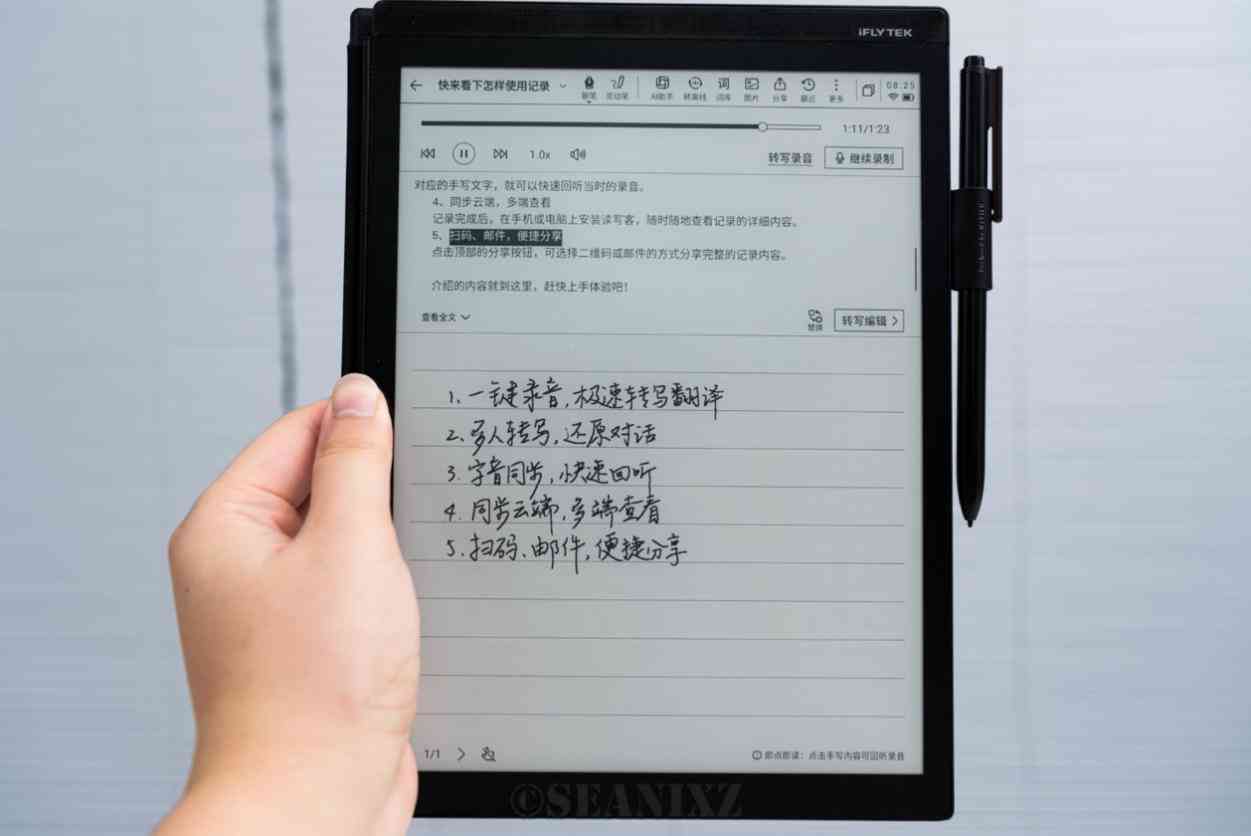 iFLYTEK
快来看下怎样使用记录
AI助手 转离线 词库 图片 分享 最近 更多
08:25
1:11/1:23
1.0x 转写录音 继续录制
对应的手写文字，就可以快速回听当时的录音。
4、同步云端，多端查看
记录完成后，在手机或电脑上安装读写客，随时随地查看记录的详细内容。
5、扫码、邮件，便捷分享
点击顶部的分享按钮，可选择二维码或邮件的方式分享完整的记录内容。
介绍的内容就到这里，赶快上手体验吧！
查看全文 替换 转写编辑
1、一键录音，极速转写翻译
2、多人转写，还原对话
3、字音同步，快速回听
4. 同步云端，多端查看
5. 扫码、邮件，便捷分享
1/1 即点即读：点击手写内容可回听录音
©SEANIXZ